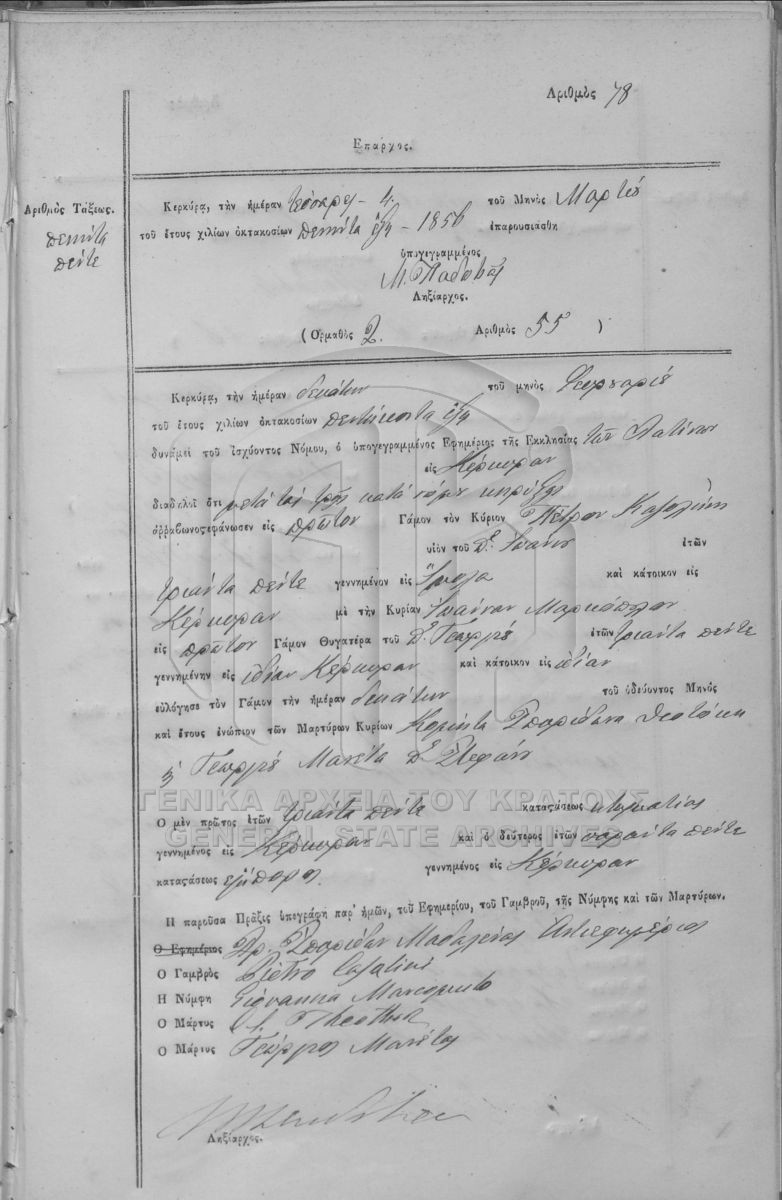 Αριθμὸς 78
Επαρχος.
Αριθμὸς Τάξεως.
πενήντα
πέντε
Κερκύρα, τὴν ἡμέραν τέσσαρες - 4. τοῦ Μηνὸς Μαρτίου
τοῦ ἔτους χιλίων ὀκτακοσίων πενήντα ἕξη - 1856 ἐπαρουσιάσθη
ὑπογεγραμμένος
Ληξίαρχος.
( Ορμαθὸς 2. Αριθμὸς 55 )
Κερκύρα, τὴν ἡμέραν δεκάτην τοῦ μηνὸς Φεβρουαρίου
τοῦ ἔτους χιλίων ὀκτακοσίων πεντήκοντα ἕξη
δυνάμει τοῦ ἰσχύοντος Νόμου, ὁ ὑπογεγραμμένος Ἐφημέριος τῆς Εκκλησίας τῶν Λατίνων
εἰς Κέρκυραν
διαδηλοῖ ὅτι μετὰ τὰς τρεῖς κατὰ νόμον κηρύξεις
ἀρραβωνοςεφάνωσεν εἰς πρῶτον Γάμον τὸν Κύριον Πέτρον Καζαλίνη
υἱὸν τοῦ Δ. Ἰωάννου ἐτῶν
τριάντα πέντε γεννημένον εἰς Ἴμολα καὶ κάτοικον εἰς
Κέρκυραν μὲ τὴν Κυρίαν Ἰωάνναν Μαρκόπολον
εἰς πρῶτον Γάμον Θυγατέρα τοῦ Δ. Γεωργίου ἐτῶν τριάντα πέντε
γεννημένην εἰς ἰδίαν Κέρκυραν καὶ κάτοικον εἰς ἰδίαν
εὐλόγησε τὸν Γάμον τὴν ἡμέραν δεκάτην τοῦ ὁδεύοντος Μηνὸς
καὶ ἔτους ἐνώπιον τῶν Μαρτύρων Κυρίων Κομήντα Σπυρίδωνα Θεοτόκη
ἢ Γεωργίου Μανέτα Δ. Στεφάνου
Ο μὲν πρῶτος ἐτῶν τριάντα πέντε καταςάσεως κτηματίας
γεννημένος εἰς Κέρκυραν καὶ ὁ δεύτερος ἐτῶν σαράντα πέντε
καταςάσεως ἔμπορος γεννημένος εἰς Κέρκυραν
Η παροῦσα Πρᾶξις ὑπεγράφη παρ' ἡμῶν, τοῦ Εφημερίου, τοῦ Γαμβροῦ, τῆς Νύμφης καὶ τῶν Μαρτύρων.
Ο Εφημέριος Σπυρίδων Μαδαλένας Αντεφημέριος
Ο Γαμβρὸς Pietro Casalini
Η Νύμφη Giovanna Marcopulo
Ο Μάρτυς Theotky
Ο Μάρτυς Γεώργιος Μανέτας
Ληξίαρχος.
ΓΕΝΙΚΑ ΑΡΧΕΙΑ ΤΟΥ ΚΡΑΤΟΥΣ
GENERAL STATE ARCHIVES